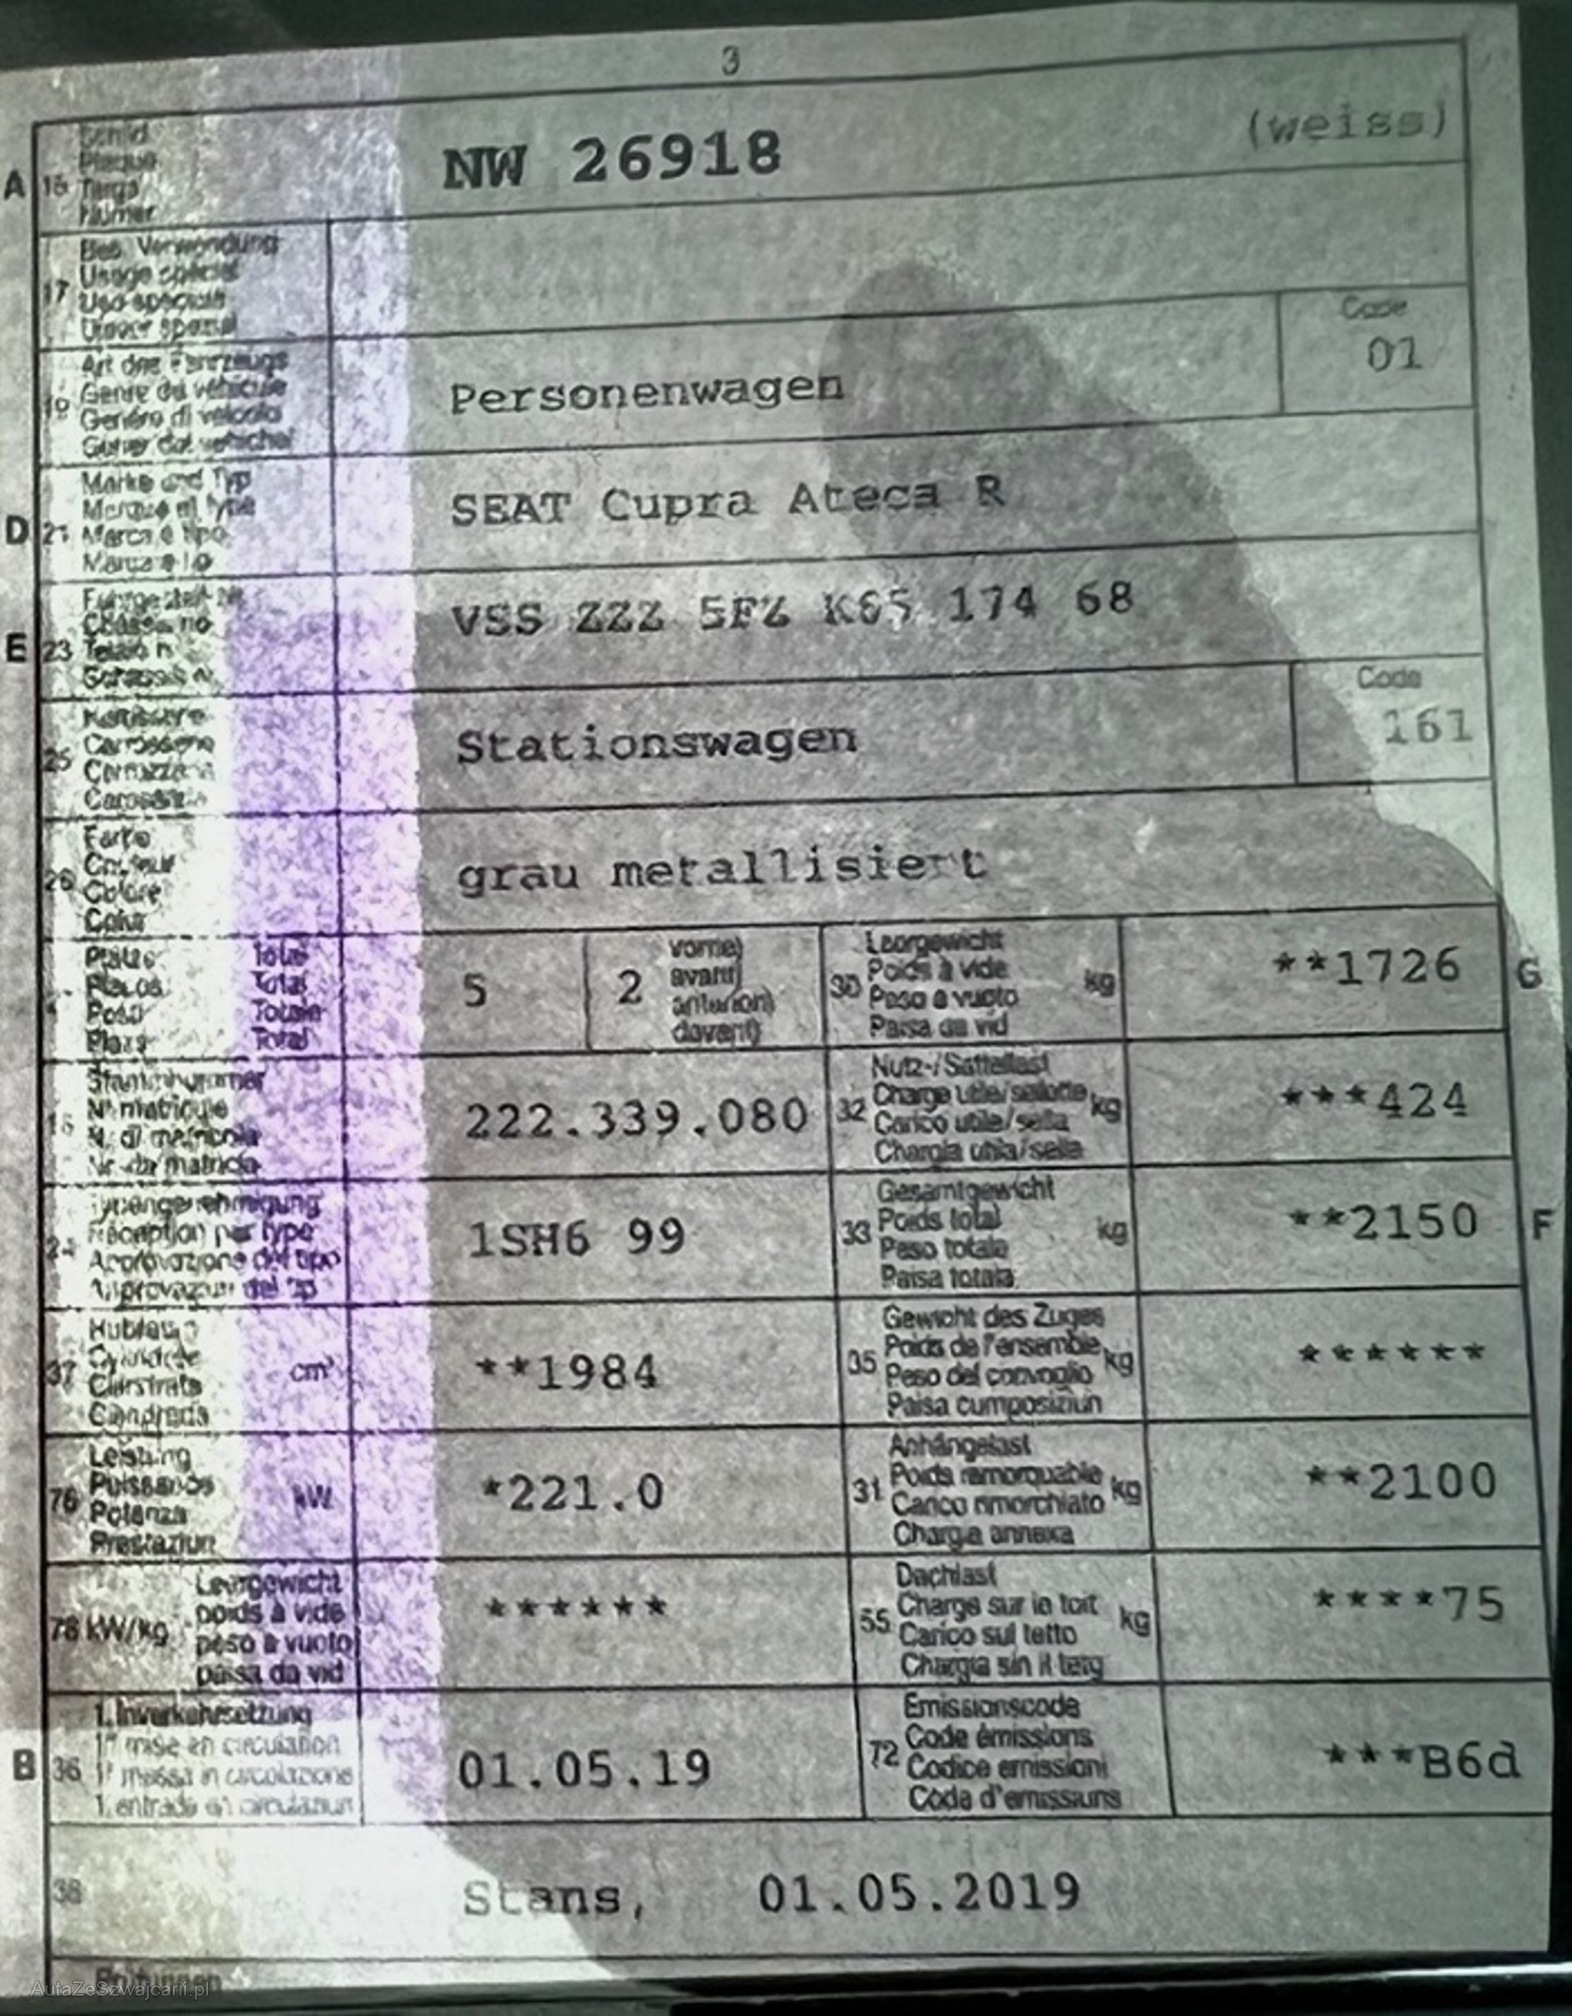 3
A 15 Schild NW 26918 (weiss)
Plaque
Targa
Numer
17 Bes. Verwendung
Usage spécial
Uso speciale
Diever spezial
19 Art des Fahrzeugs Personenwagen Code 01
Genre du véhicule
Genere di veicolo
Gener dal vehichel
D 21 Marke und Typ SEAT Cupra Ateca R
Marque et type
Marca e tipo
Marca e tip
E 23 Fahrgestell-Nr. VSS ZZZ 5FZ K65 174 68
Châssis no
Telaio n.
Schassis nr.
25 Karosserie Stationswagen Code 161
Carrosserie
Carrozzeria
Carossaria
26 Farbe grau metallisiert
Couleur
Colore
Colur
Plätze Total 5 2 vorne)
Places Total avant)
Posti Totale anteriori)
Plazs Total davent)
30 Leergewicht kg **1726 G
Poids à vide
Peso a vuoto
Paisa da vid
Stammnummer 222.339.080
N° matricule
N. di matricola
Nr. da matricla
32 Nutz-/Sattellast kg ***424
Charge utile/sellette
Carico utile/sella
Chargia utila/sella
Typengenehmigung 1SH6 99
Réception par type
Approvazione del tipo
Approvaziun del tip
33 Gesamtgewicht kg **2150 F
Poids total
Peso totale
Paisa totala
37 Hubraum cm³ **1984
Cylindrée
Cilindrata
Cilindrada
35 Gewicht des Zuges kg ******
Poids de l'ensemble
Peso del convoglio
Paisa cumposiziun
76 Leistung kW *221.0
Puissance
Potenza
Prestaziun
31 Anhängelast kg **2100
Poids remorquable
Carico rimorchiato
Chargia annexa
78 kW/kg Leergewicht ******
poids à vide
peso a vuoto
paisa da vid
55 Dachlast kg ****75
Charge sur le toit
Carico sul tetto
Chargia sin il tetg
B 36 1. Inverkehrsetzung 01.05.19
1re mise en circulation
1a messa in circolazione
1. entrada en circulaziun
72 Emissionscode ***B6d
Code émissions
Codice emissioni
Coda d'emissiuns
38 Stans, 01.05.2019
AutaZeSzwajcarii.pl